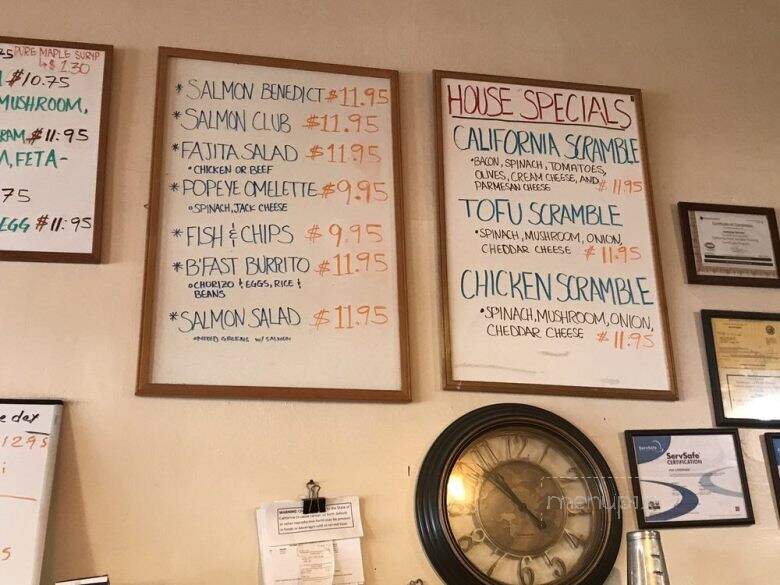 PURE MAPLE SURYP
$1.30
$10.75
MUSHROOM,
$11.95
FETA-
75
EGG $11.95
* SALMON BENEDICT $11.95
* SALMON CLUB $11.95
* FAJITA SALAD $11.95
• CHICKEN OR BEEF
* POPEYE OMELETTE $9.95
• SPINACH, JACK CHEESE
* FISH & CHIPS $9.95
* B'FAST BURRITO $11.95
• CHORIZO & EGGS, RICE &
BEANS
* SALMON SALAD $11.95
MIXED GREENS W/ SALMON
HOUSE SPECIALS
CALIFORNIA SCRAMBLE
• BACON, SPINACH, TOMATOES,
OLIVES, CREAM CHEESE, AND
PARMESAN CHEESE $11.95
TOFU SCRAMBLE
• SPINACH, MUSHROOM, ONION,
CHEDDAR CHEESE $11.95
CHICKEN SCRAMBLE
• SPINACH, MUSHROOM, ONION,
CHEDDAR CHEESE $11.95
e day
1295
i
5
WARNING
ServSafe
ServSafe
CERTIFICATION
menupix